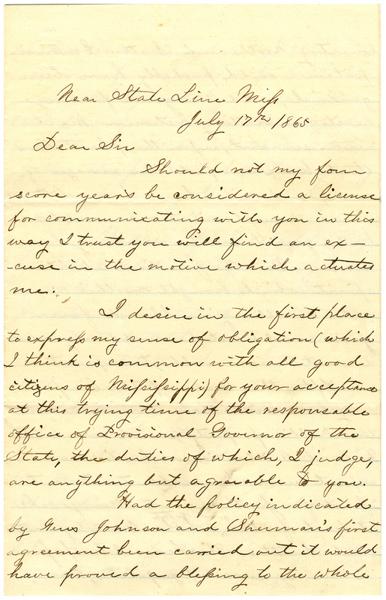 Near State Line Miss
July 17th 1865
Dear Sir
Should not my four
score years be considered a license
for communicating with you in this
way I trust you will find an ex-
-cuse in the motive which actuates
me:.
I desire in the first place
to express my sense of obligation (which
I think is common with all good
citizens of Mississippi) for your acceptance
at this trying time of the responsable
office of Provisional Governor of the
State, the duties of which, I judge,
are anything but agreeable to you.
Had the policy indicated
by Gens Johnson and Sherman's first
agreement been carried out it would
have proved a blessing to the whole